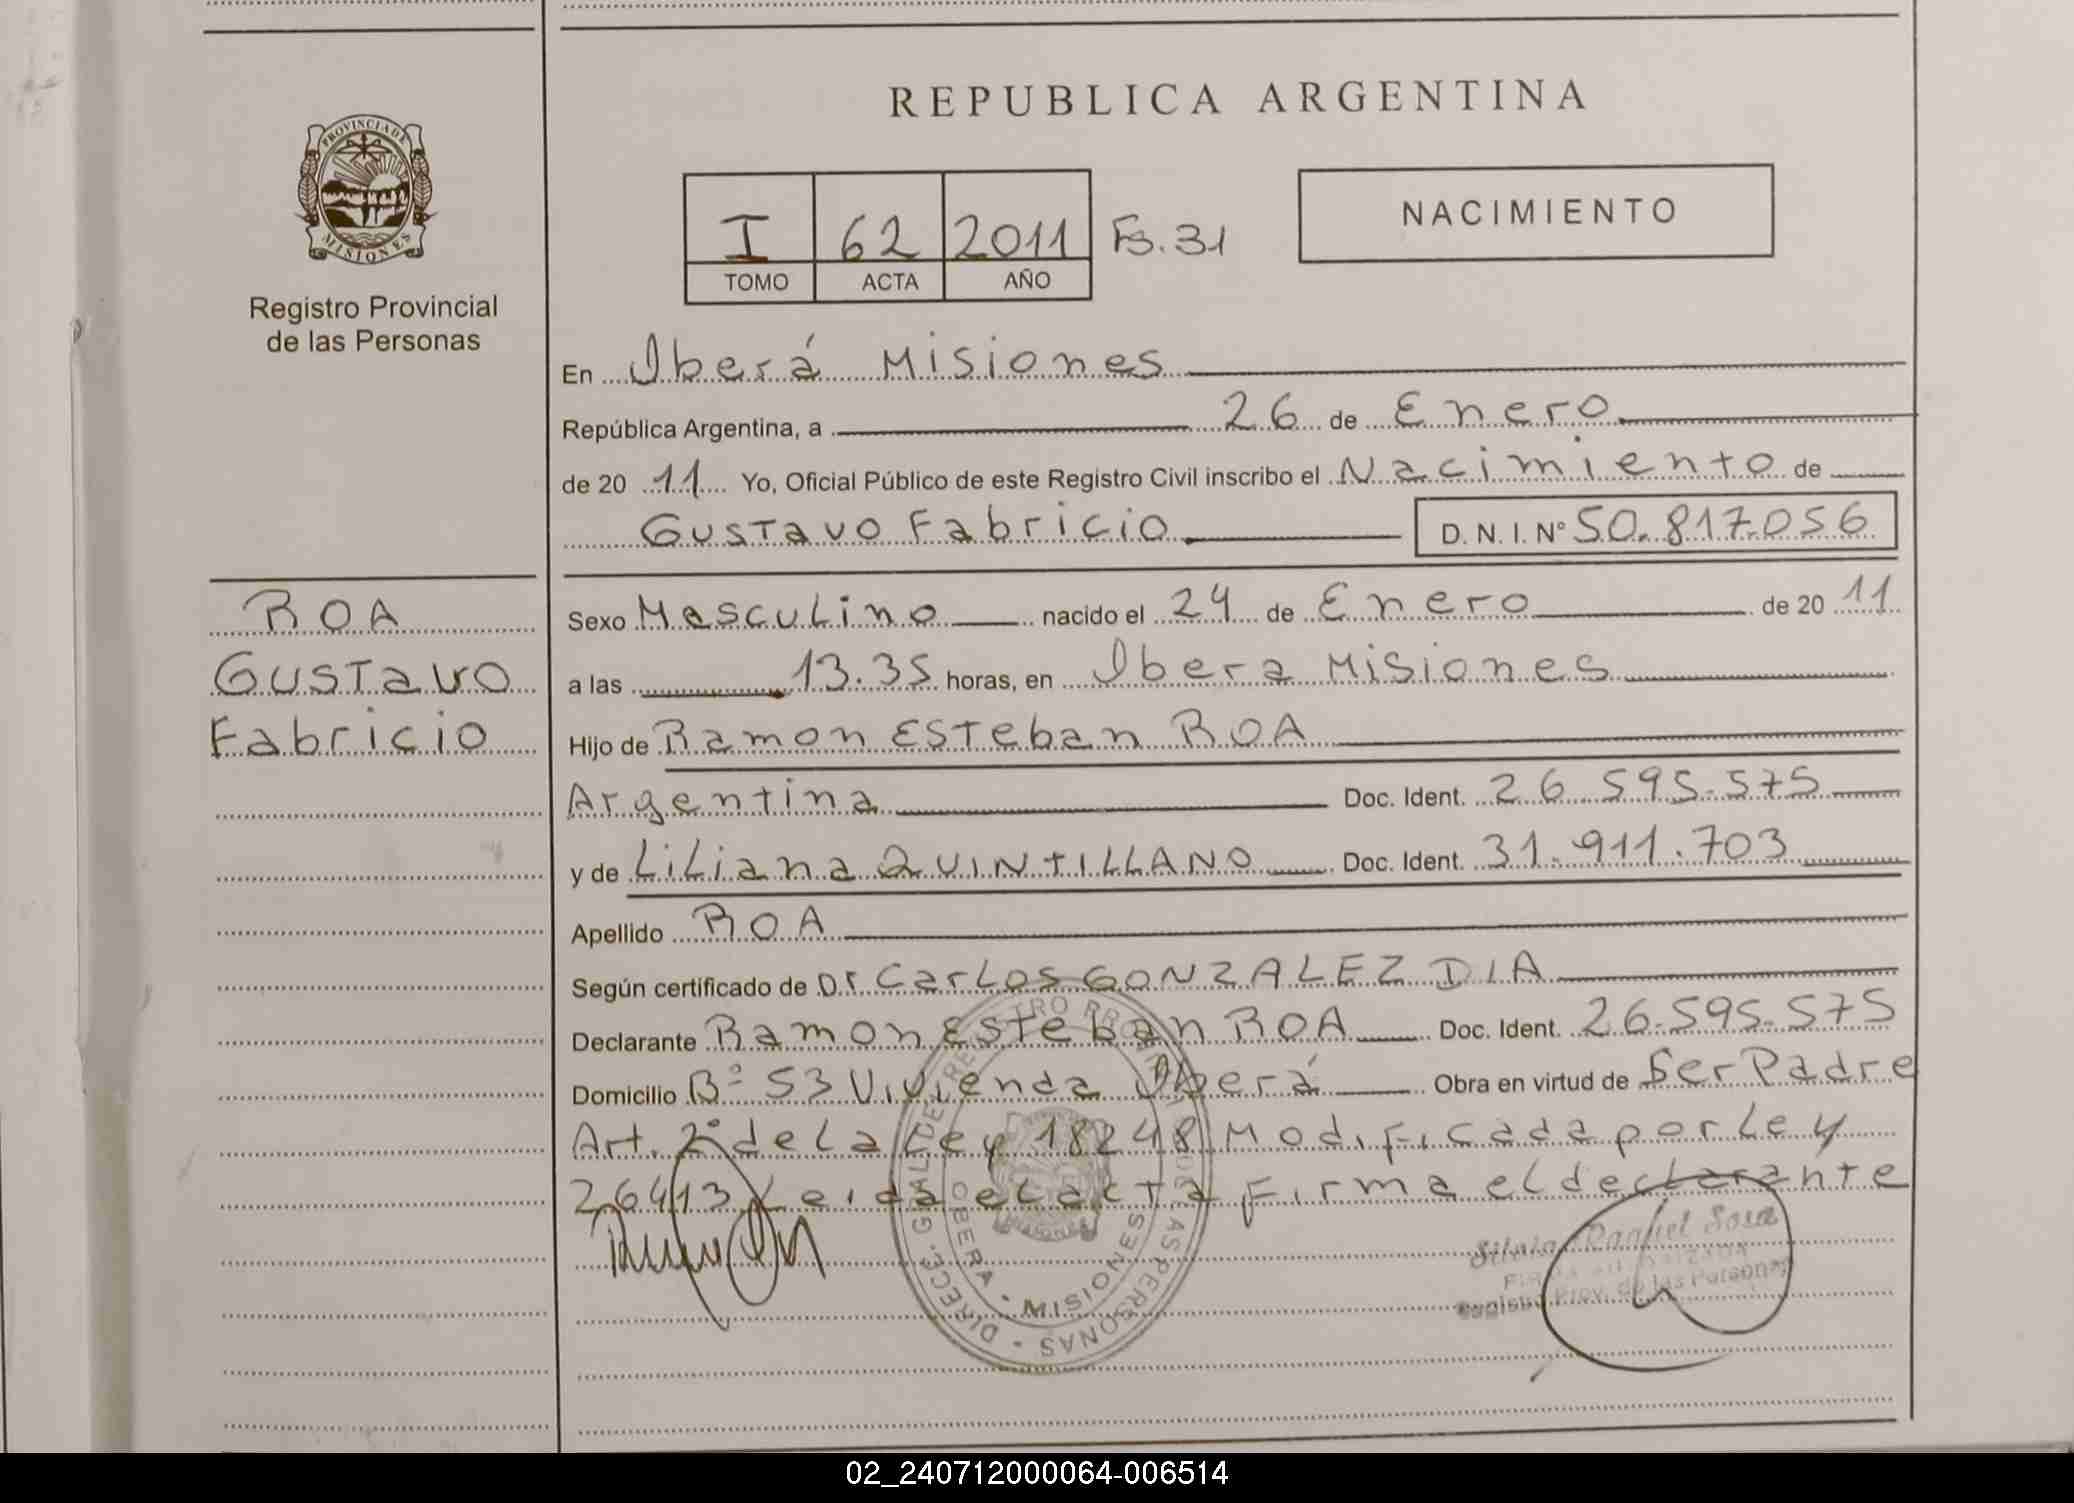 REPUBLICA ARGENTINA
PROVINCIA DE
MISIONES
Registro Provincial
de las Personas
I 62 2011 Fs. 31
TOMO ACTA AÑO
NACIMIENTO
En Iberá Misiones
República Argentina, a 26 de Enero
de 20 11 Yo, Oficial Público de este Registro Civil inscribo el Nacimiento de
Gustavo Fabricio D. N. I. Nº 50.817.056
ROA
Gustavo
Fabricio
Sexo Masculino nacido el 24 de Enero de 20 11
a las 13.35 horas, en Ibera Misiones
Hijo de Ramon Esteban ROA
Argentina Doc. Ident. 26.595.575
y de Liliana QUINTILLANO Doc. Ident. 31.911.703
Apellido ROA
Según certificado de Dr Carlos GONZALEZ DIA
Declarante Ramon Esteban ROA Doc. Ident. 26.595.575
Domicilio Bº 53 Vivienda Iberá Obra en virtud de Ser Padre
Art. 2º de La Ley 18248 Modificada por Ley
26413 Leida el acta Firma el declarante
DIRECC. GRAL DE REGISTRO PROVINCIAL DE LAS PERSONAS
OBERA - MISIONES
Silvio Daniel Sosa
Registro Prov. de las Personas
02_240712000064-006514